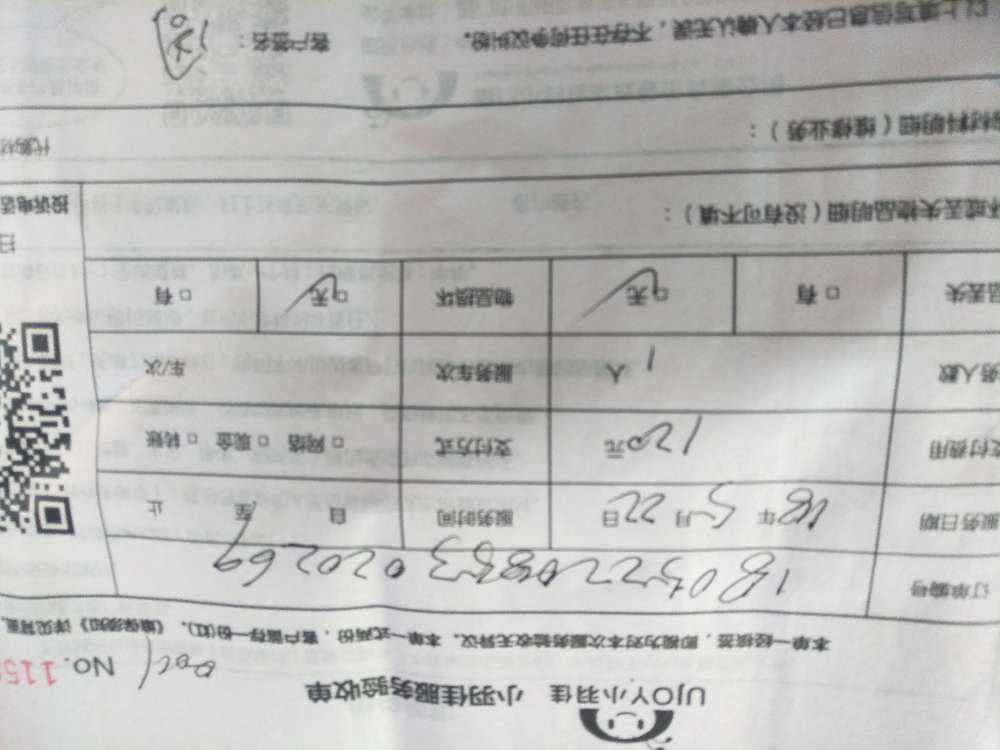 UJOY小羽佳 小羽佳服务验收单
No. 115
本单一经接签，即视为对本次服务验收无异议。本单一式两份，客户留存一份(红)。《维保须知》详见背面
订单编号
服务日期 18年5月22日 服务时间 自 至 止
支付费用 120元 支付方式 □网络 □现金 □转账
务人数 1人 服务车次 车/次
品丢失 □有 □无 物品损坏 □无 □有
坏或丢失物品明细（没有可不填）：
投诉电话
材料明细（维修业务）：
代购材
以上填写信息已经本人确认无误，不存在任何争议纠纷。 客户签名：